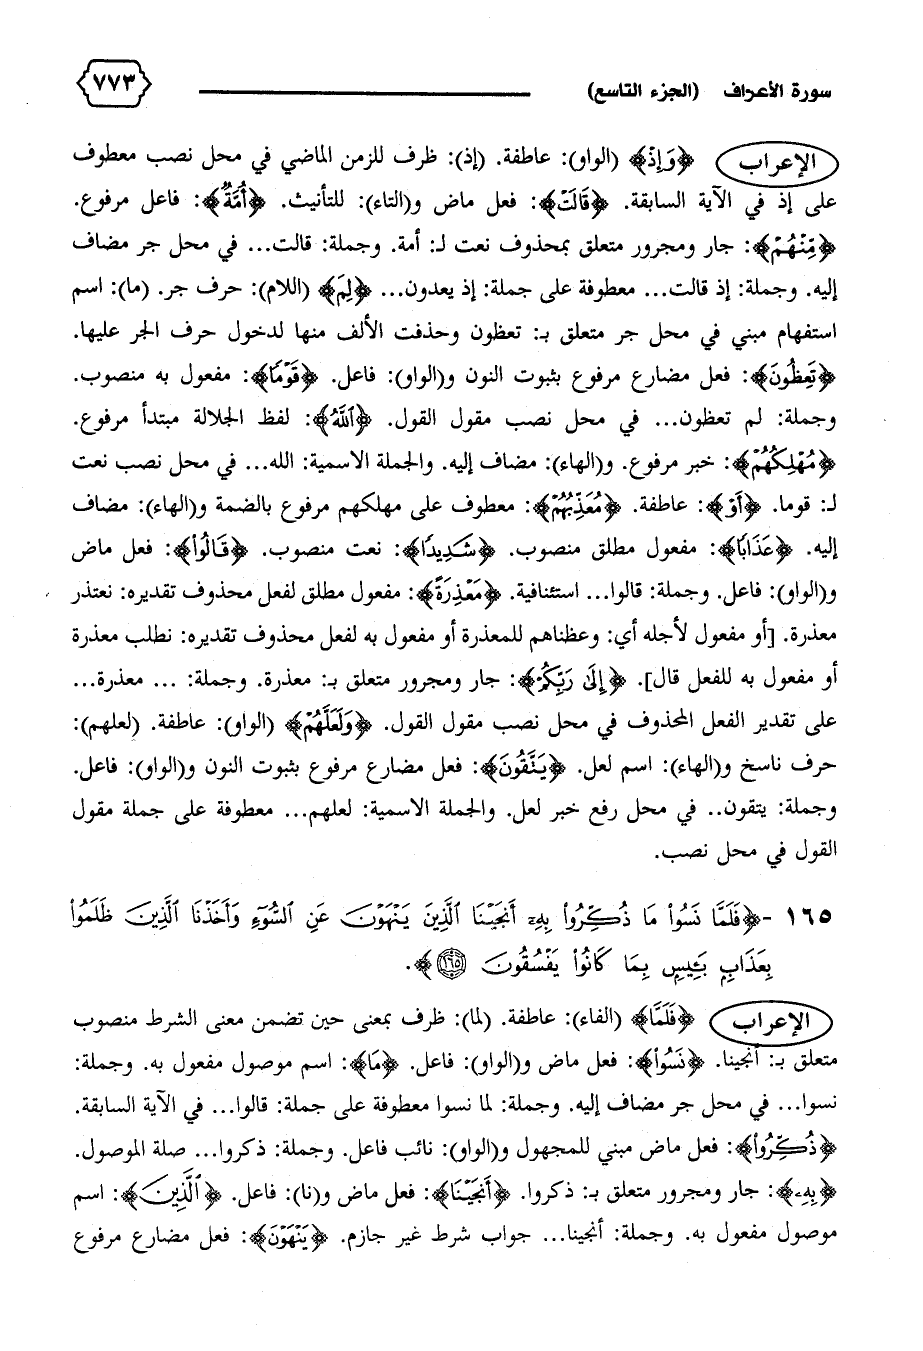 سورة الأعراف (الجزء التاسع)
٧٧٣
الإعراب ﴿وَإِذْ﴾ (الواو): عاطفة. (إذ): ظرف للزمن الماضي في محل نصب معطوف
على إذ في الآية السابقة. ﴿قَالَتْ﴾: فعل ماض و(التاء): للتأنيث. ﴿أُمَّةٌ﴾: فاعل مرفوع.
﴿مِّنْهُمْ﴾: جار ومجرور متعلق بمحذوف نعت لـ: أمة. وجملة: قالت... في محل جر مضاف
إليه. وجملة: إذ قالت... معطوفة على جملة: إذ يعدون... ﴿لِمَ﴾ (اللام): حرف جر. (ما): اسم
استفهام مبني في محل جر متعلق بـ: تعظون وحذفت الألف منها لدخول حرف الجر عليها.
﴿تَعِظُونَ﴾: فعل مضارع مرفوع بثبوت النون و(الواو): فاعل. ﴿قَوْمًا﴾: مفعول به منصوب.
وجملة: لم تعظون... في محل نصب مقول القول. ﴿اللَّهُ﴾: لفظ الجلالة مبتدأ مرفوع.
﴿مُهْلِكُهُمْ﴾: خبر مرفوع. و(الهاء): مضاف إليه. والجملة الاسمية: الله... في محل نصب نعت
لـ: قوما. ﴿أَوْ﴾: عاطفة. ﴿مُعَذِّبُهُمْ﴾: معطوف على مهلكهم مرفوع بالضمة و(الهاء): مضاف
إليه. ﴿عَذَابًا﴾: مفعول مطلق منصوب. ﴿شَدِيدًا﴾: نعت منصوب. ﴿قَالُوا﴾: فعل ماض
و(الواو): فاعل. وجملة: قالوا... استئنافية. ﴿مَعْذِرَةً﴾: مفعول مطلق لفعل محذوف تقديره: نعتذر
معذرة. [أو مفعول لأجله أي: وعظناهم للمعذرة أو مفعول به لفعل محذوف تقديره: نطلب معذرة
أو مفعول به للفعل قال]. ﴿إِلَى رَبِّكُمْ﴾: جار ومجرور متعلق بـ: معذرة. وجملة: ... معذرة...
على تقدير الفعل المحذوف في محل نصب مقول القول. ﴿وَلَعَلَّهُمْ﴾ (الواو): عاطفة. (لعلهم):
حرف ناسخ و(الهاء): اسم لعل. ﴿يَتَّقُونَ﴾: فعل مضارع مرفوع بثبوت النون و(الواو): فاعل.
وجملة: يتقون.. في محل رفع خبر لعل. والجملة الاسمية: لعلهم... معطوفة على جملة مقول
القول في محل نصب.
١٦٥ - ﴿فَلَمَّا نَسُوا مَا ذُكِّرُوا بِهِ أَنجَيْنَا الَّذِينَ يَنْهَوْنَ عَنِ السُّوءِ وَأَخَذْنَا الَّذِينَ ظَلَمُوا
بِعَذَابٍ بَئِيسٍ بِمَا كَانُوا يَفْسُقُونَ ١٦٥﴾.
الإعراب ﴿فَلَمَّا﴾ (الفاء): عاطفة. (لما): ظرف بمعنى حين تضمن معنى الشرط منصوب
متعلق بـ: أنجينا. ﴿نَسُوا﴾: فعل ماض و(الواو): فاعل. ﴿مَا﴾: اسم موصول مفعول به. وجملة:
نسوا... في محل جر مضاف إليه. وجملة: لما نسوا معطوفة على جملة: قالوا... في الآية السابقة.
﴿ذُكِّرُوا﴾: فعل ماض مبني للمجهول و(الواو): نائب فاعل. وجملة: ذكروا... صلة الموصول.
﴿بِهِ﴾: جار ومجرور متعلق بـ: ذكروا. ﴿أَنجَيْنَا﴾: فعل ماض و(نا): فاعل. ﴿الَّذِينَ﴾: اسم
موصول مفعول به. وجملة: أنجينا... جواب شرط غير جازم. ﴿يَنْهَوْنَ﴾: فعل مضارع مرفوع